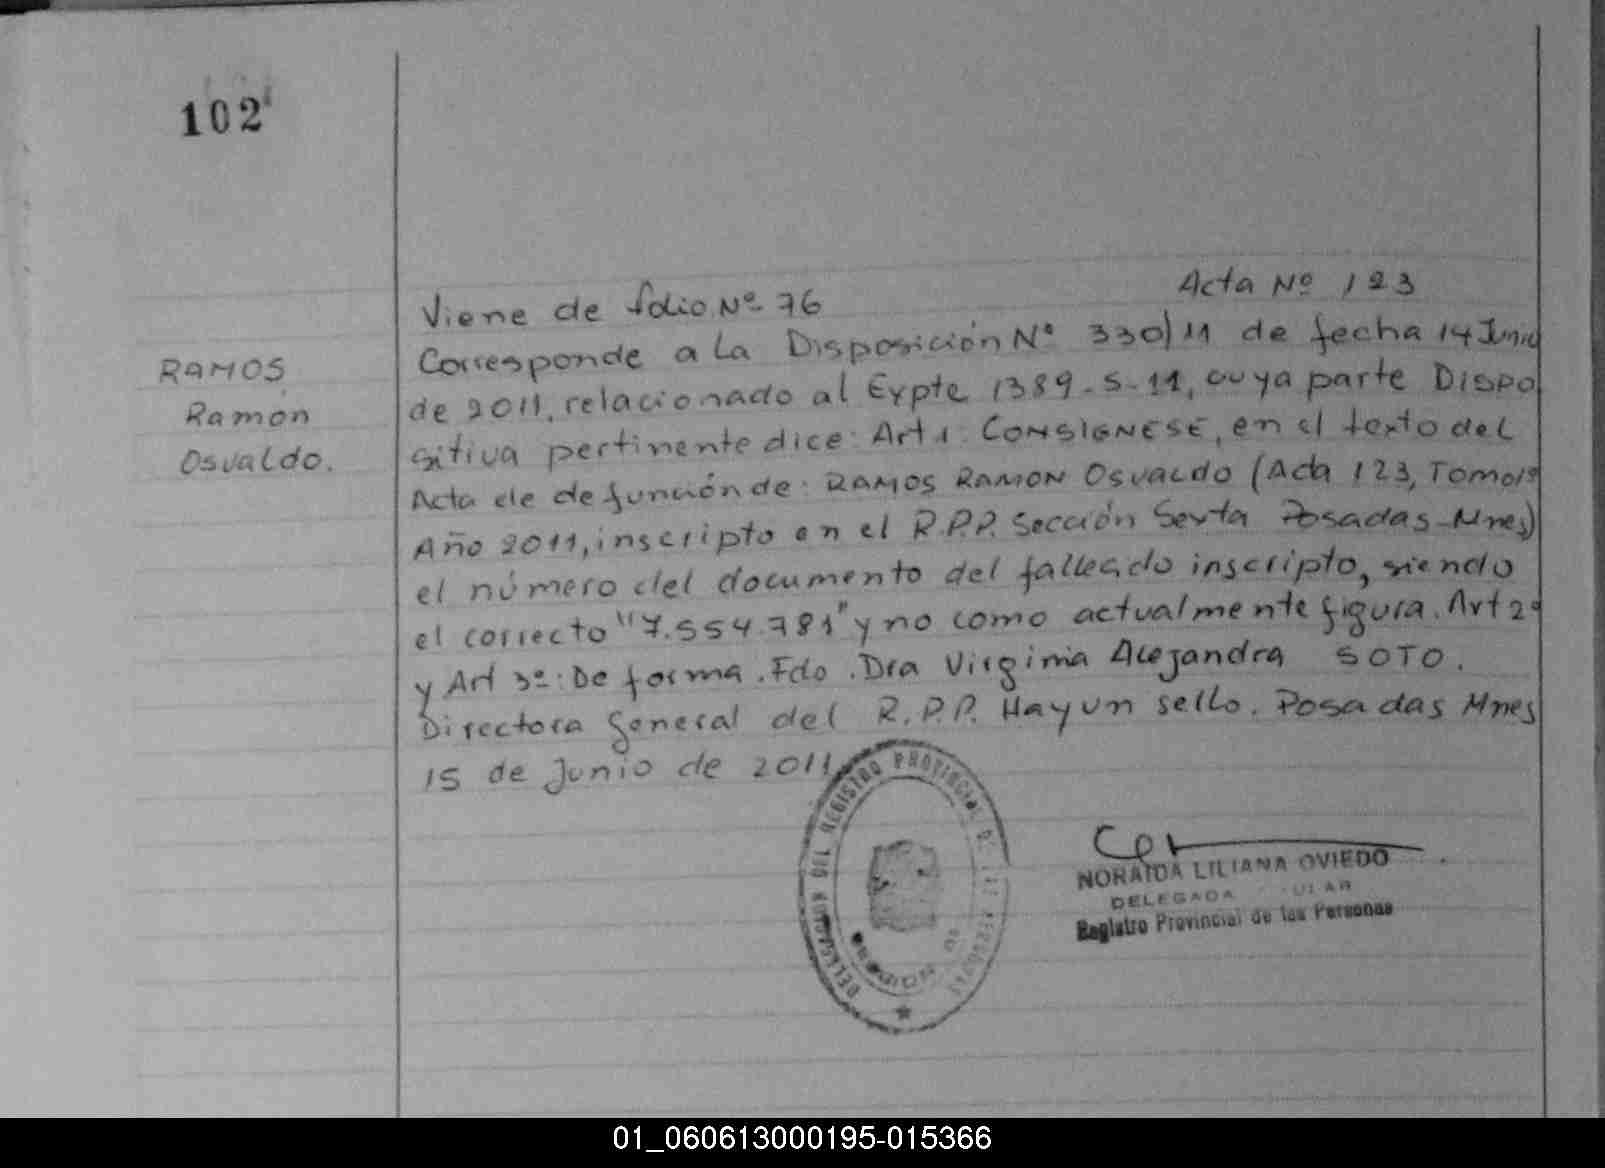 102
Acta Nº 123
Viene de folio Nº 76
RAMOS
Ramón
Osvaldo.
Corresponde a la Disposición Nº 330/11 de fecha 14 Junio
de 2011, relacionado al Expte 1389-S-11, cuya parte Dispo
sitiva pertinente dice: Art 1: CONSIGNESE, en el texto del
Acta de defunción de: RAMOS RAMON OSVALDO (Acta 123, Tomo 1º
Año 2011, inscripto en el R.P.P. Sección Sexta Posadas-Mnes)
el número del documento del fallecido inscripto, siendo
el correcto "7.554.781" y no como actualmente figura. Art 2º
y Art 3º: De forma. Fdo. Dra Virginia Alejandra SOTO.
Directora General del R.P.P. Hay un sello. Posadas Mnes
15 de Junio de 2011
DELEGACION DEL REGISTRO PROVINCIAL DE LAS PERSONAS
NORAIDA LILIANA OVIEDO
DELEGADA
Registro Provincial de las Personas
01_060613000195-015366